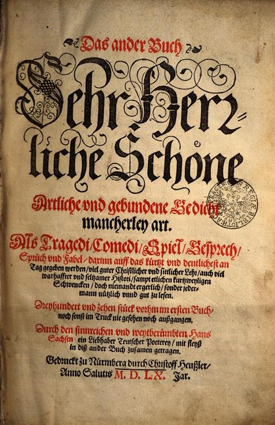 Das ander Buch
Sehr Herr-
liche Schöne
Artliche vnd gebundene Gedicht
mancherley art.
Als Tragedi/Comedi/Spiel/Gesprech/
Sprüch vnd Fabel/ darinn auff das kürtzt vnd deutlichest an
Tag gegeben werden/viel guter Christlicher vnd sittlicher Lehr/auch viel
warhaffter vnd seltzamer Histori/sampt etlichen kurtzweyligen
Schwencken/ doch niemandt ergerlich/ sonder jeder-
mann nützlich vnnd gut zu lesen.
Dreyhundert vnd zehen stück vorhin im ersten Buch
noch sonst im Truck nie gesehen noch außgangen.
Durch den sinnreichen vnd weytberümbten Hans
Sachsen ein Liebhaber Teutscher Poeterey / mit fleyß
in diß ander Buch zusamen getragen.
Gedruckt zu Nürmberg durch Christoff Heußler/
Anno Salutis M. D. LX. Jar.